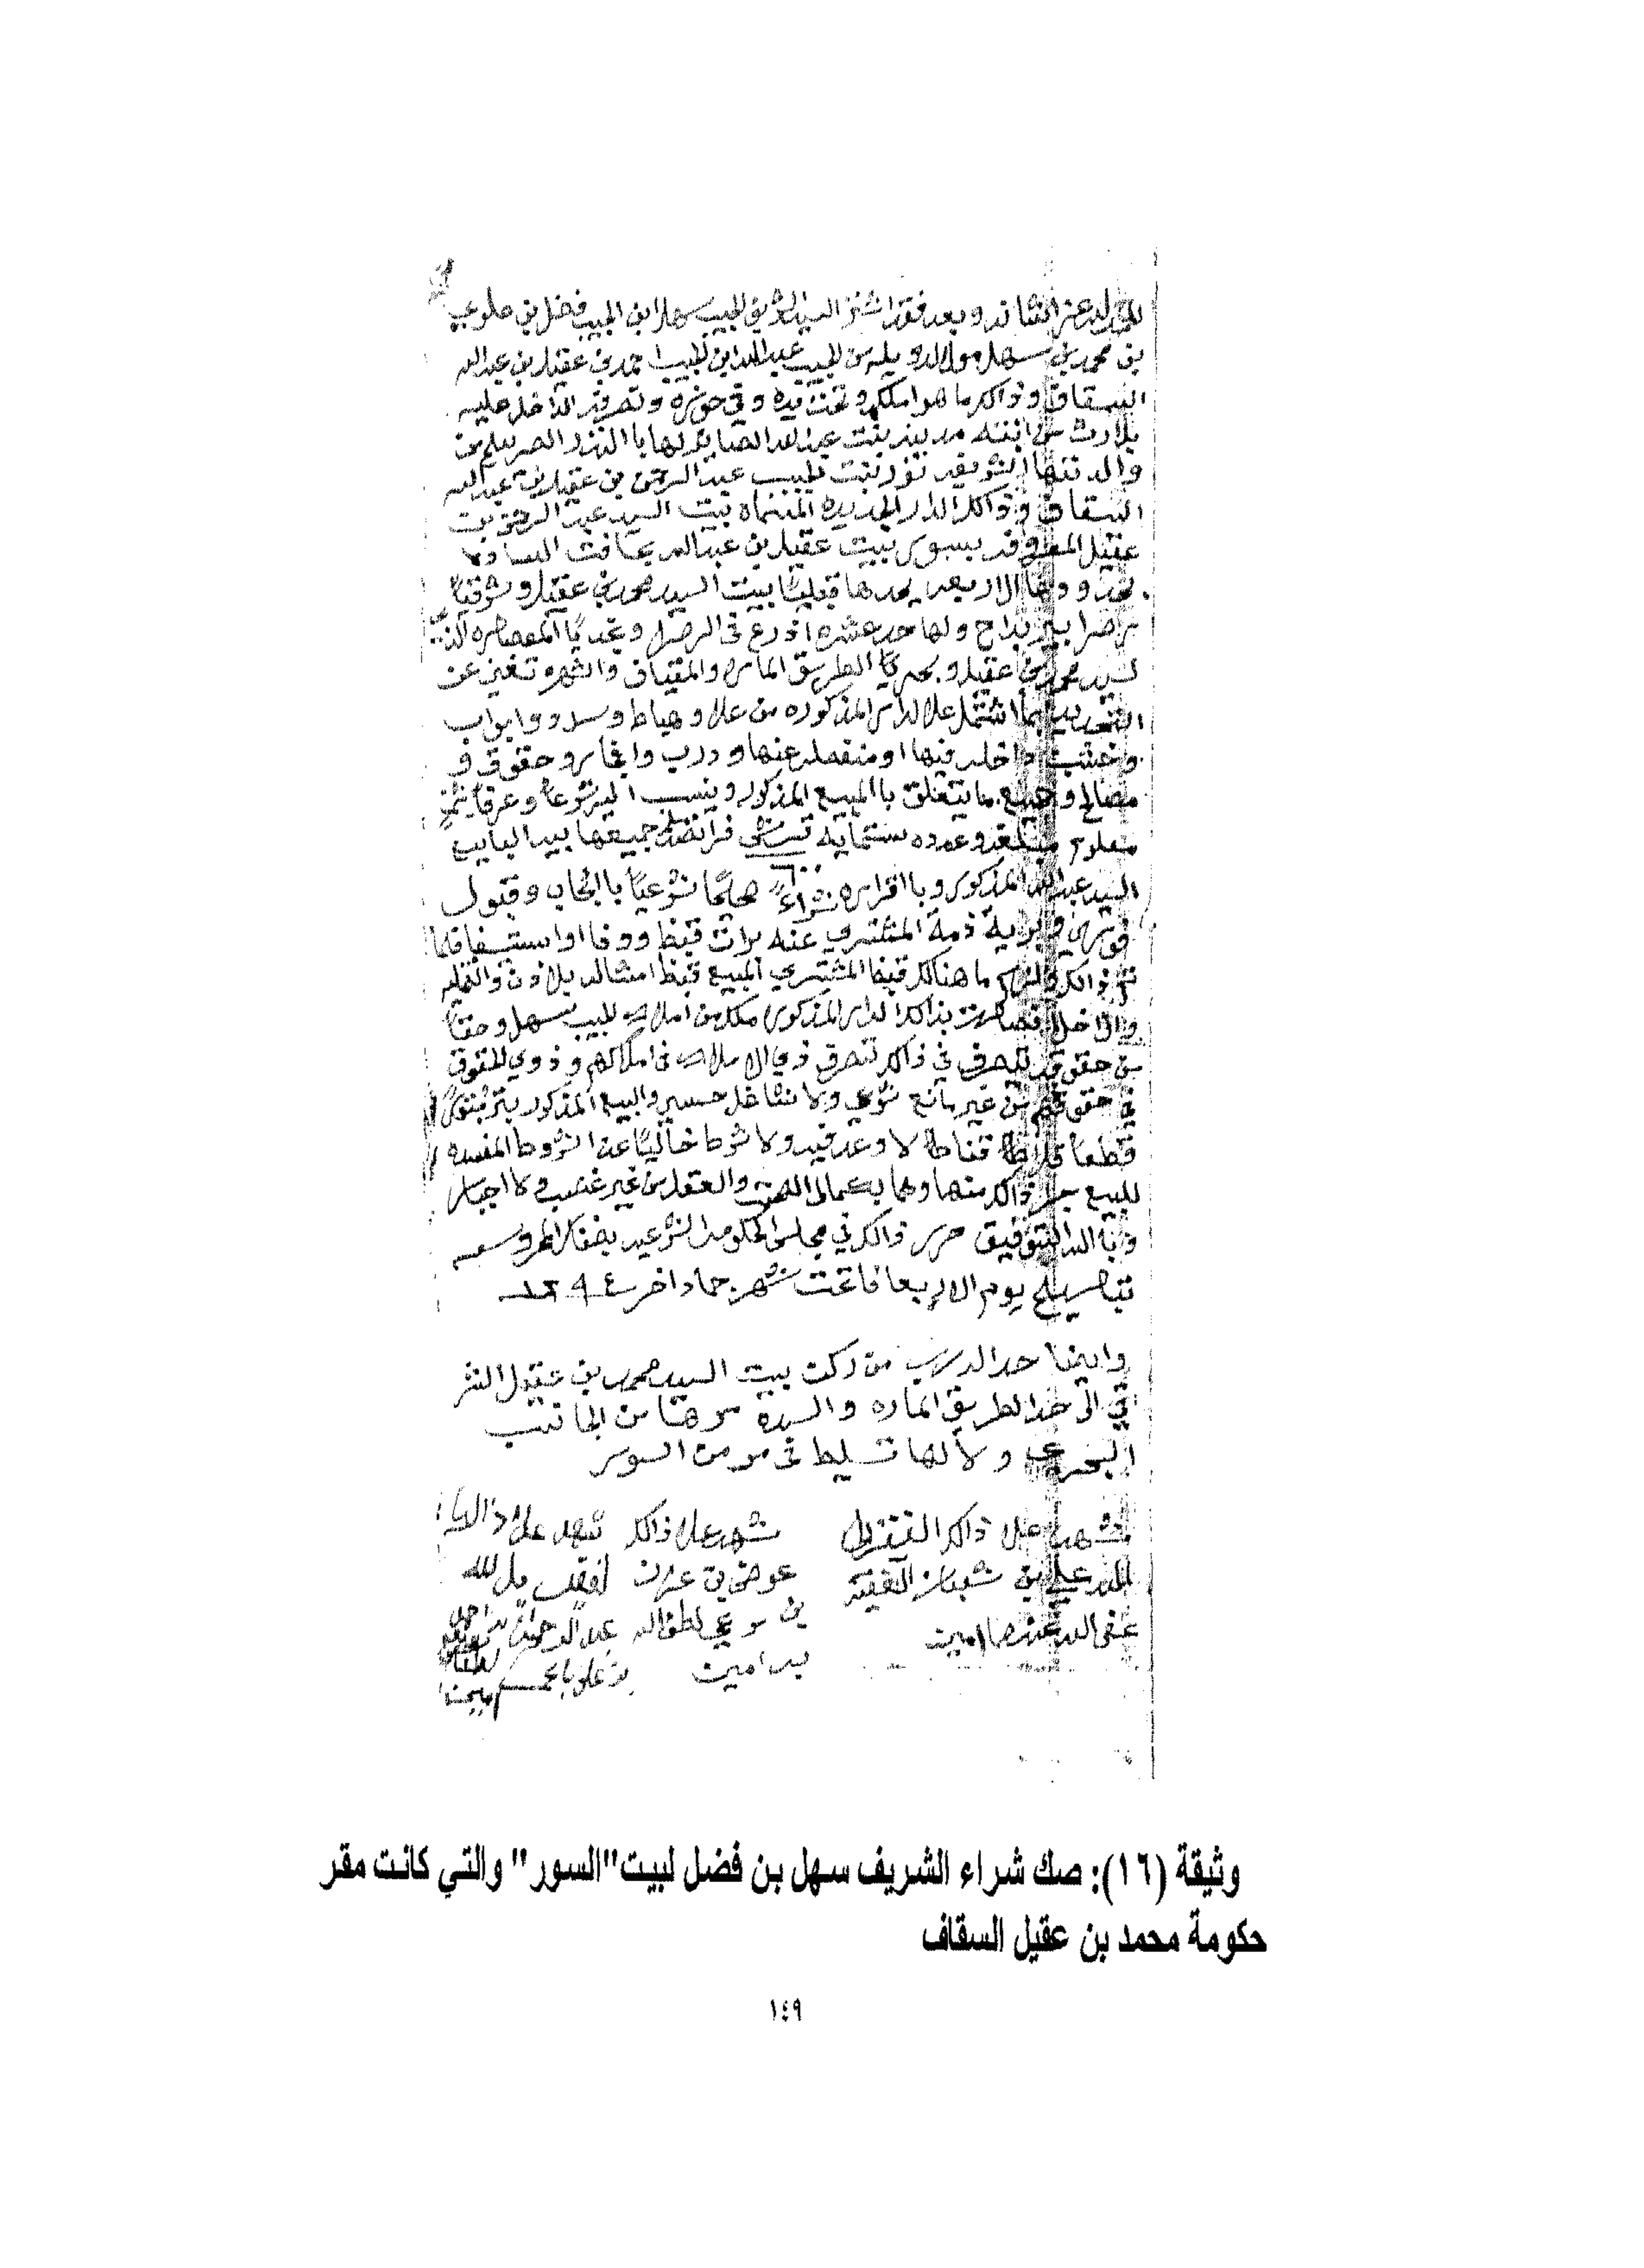 الحمد لله عز شانه وبعد فقد اشترا السيد الشريف الحبيب سهل ابن الحبيب فضل بن علوي
بن محمد بن سهل مولا الدويله من الحبيب عبدالله ابن الحبيب احمد بن عقيل بن عبدالله
السقاف وذالك ما هو املكه وتحت يده وفي حوزه وتصرفه الداخل عليه
بلارث من ابنته مدينه بنت عبدالله الصاير لها با النذر الصريح من
والدتها الشريفه نور بنت الحبيب عبدالرحمن بن عقيل بن عبدالله
السقاف وذالك الدار الجديده المسماه بيت السيد عبدالرحمن بن
عقيل المعروفه بسور بيت عقيل بن عبدالله بحافت الساده
حدودها الاربعه يحدها قبليًا بيت السيد محمد بن عقيل وشرقيًا
ولها عشره اذرع في الرضا ونجديًا المعصاره الذي
لسيد محمد بن عقيل وبحريًا الطريق الماره والمقياف والشهره تغني عن
التحديد بما اشتمل علا الدار المذكوره من علا وهياط وسدد وابواب
وخشب داخله فيها او منفصله عنها ودرب وحقوق و
مصالح وجميع ما يتعلق با المبيع المذكور وينسب اليه شرعًا وعرفًا بثمن
معلوم مبلغه وعدده ستمايه قرش فرانصه جميعها بيد البايع
٦٠٠
السيد عبدالله المذكور وبا اقراره شراءً صحيحًا شرعيًا با ايجاب وقبول
ذمة المشتري عنه برات قبض ووفا او استيفا فلما
تم ذالك ولزم ما هنالك قبض المشتري المبيع قبض امثاله بلاذن والتخليه
والداخل فصارت بذالك الدار المذكوره ملك من املاك الحبيب سهل وحقًا
من حقوقه يتصرف في ذالك تصرف ذوي الاملاك في املاكهم وذوي الحقوق
في حقوقهم من غير مانع شرعي ولا شاغل حسي والبيع المذكور
قطعًا لا وعد فيه ولا شرط خاليًا عن الشروط المفسده
للبيع جرا ذالك منهما وهما بكمال الصحه والعقل من غير غصب ولا اجبار
وبا الله التوفيق حرر ذالك في مجلس الحكومه الشرعيه بضفار المحروسه
بتاريخ يوم الاربعا فاتحت شهر جماد اخر ١٢٩٤
وايضا حد الدرب من ركت بيت السيد محمد بن عقيل الشر
قي الى حد الطريق الماره والسده من الجانب
البحري ولا لها تسليط من السور
شهد علا ذالك الفقير الى
الله علي بن الفقيه
عفى الله عنهما امين
شهد علا ذالك
عوض بن
لطف الله
به امين
شهد علا ذالك
افقر
وثيقة (١٦): صك شراء الشريف سهل بن فضل لبيت "السور" والتي كانت مقر
حكومة محمد بن عقيل السقاف
١٤٩